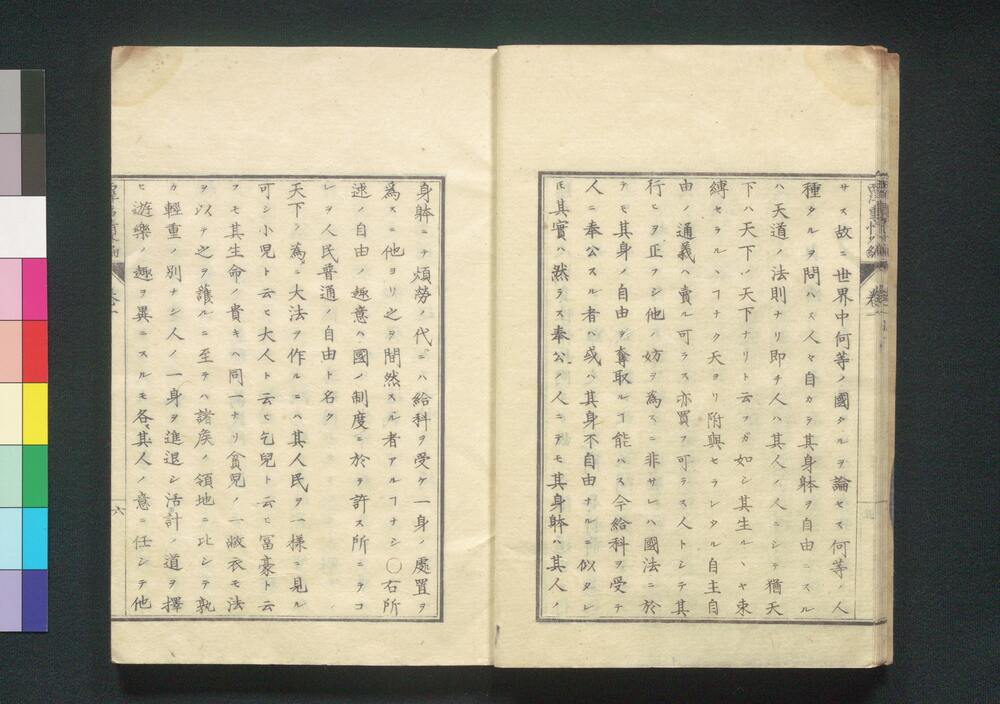 サス故ニ世界中何等ノ國タルヲ論セス何等ノ人
種タルヲ問ハス人々自カラ其身躰ヲ自由ニスル
ハ天道ノ法則ナリ即チ人ハ其人ノ人ニシテ猶天
下ハ天下ノ天下ナリト云フガ如シ其生ルヽヤ束
縛セラルヽヿナク天ヨリ附與セラレタル自主自
由ノ通義ハ賣ル可ラス亦買フ可ラス人トシテ其
行ヒヲ正フシ他ノ妨ヲ為スニ非サレハ國法ニ於
テモ其身ノ自由ヲ奪取ルヿ能ハス今給料ヲ受テ
人ニ奉公スル者ハ或ハ其身不自由ナルニ似タレ
𪜈其實ハ然ラス奉公ノ人ニテモ其身躰ハ其人ノ
身躰ニテ煩勞ノ代ニハ給料ヲ受ケ一身ノ處置ヲ
為スニ他ヨリ之ヲ間然スル者アルヿナシ〇右所
述ノ自由ノ趣意ハ國ノ制度ニ於テ許ス所ニテコ
レヲ人民普通ノ自由ト名ク
天下ノ為ニ大法ヲ作ルニハ其人民ヲ一様ニ見ル
可シ小児ト云ヒ大人ト云ヒ乞兒ト云ヒ冨豪ト云
フモ其生命ノ貴キハ同一ナリ貧児ノ一敝衣モ法
ヲ以テ之ヲ護ルニ至テハ諸矦ノ領地ニ比シテ孰
カ輕重ノ別ナシ人ノ一身ヲ進退シ活計ノ道ヲ擇
ヒ遊樂ノ趣ヲ異ニスルモ各其人ノ意ニ任シテ他
六